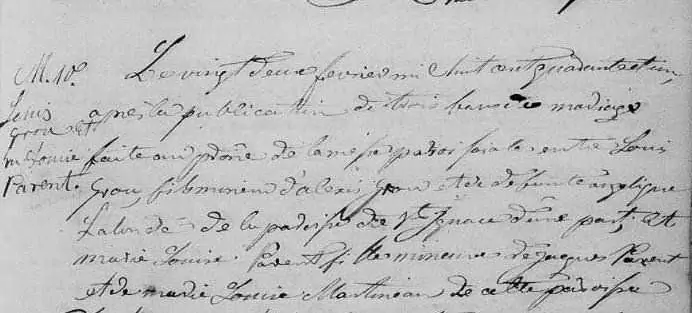 M. 10e. Le vingt deux fevrier mil huit cent quarante et un,
Louis Grou et m Louise Parent.
apres la publication de trois bans de mariage
faite au prône de la messe paroissiale entre Louis
Grou, fils mineur d'alexis Grou et de defunte angelique
Lalonde de la paroisse de St. Ignace d'une part; et
marie Louise Parent fille mineure de jaques Parent
et de marie Louise Martineau de cette paroisse